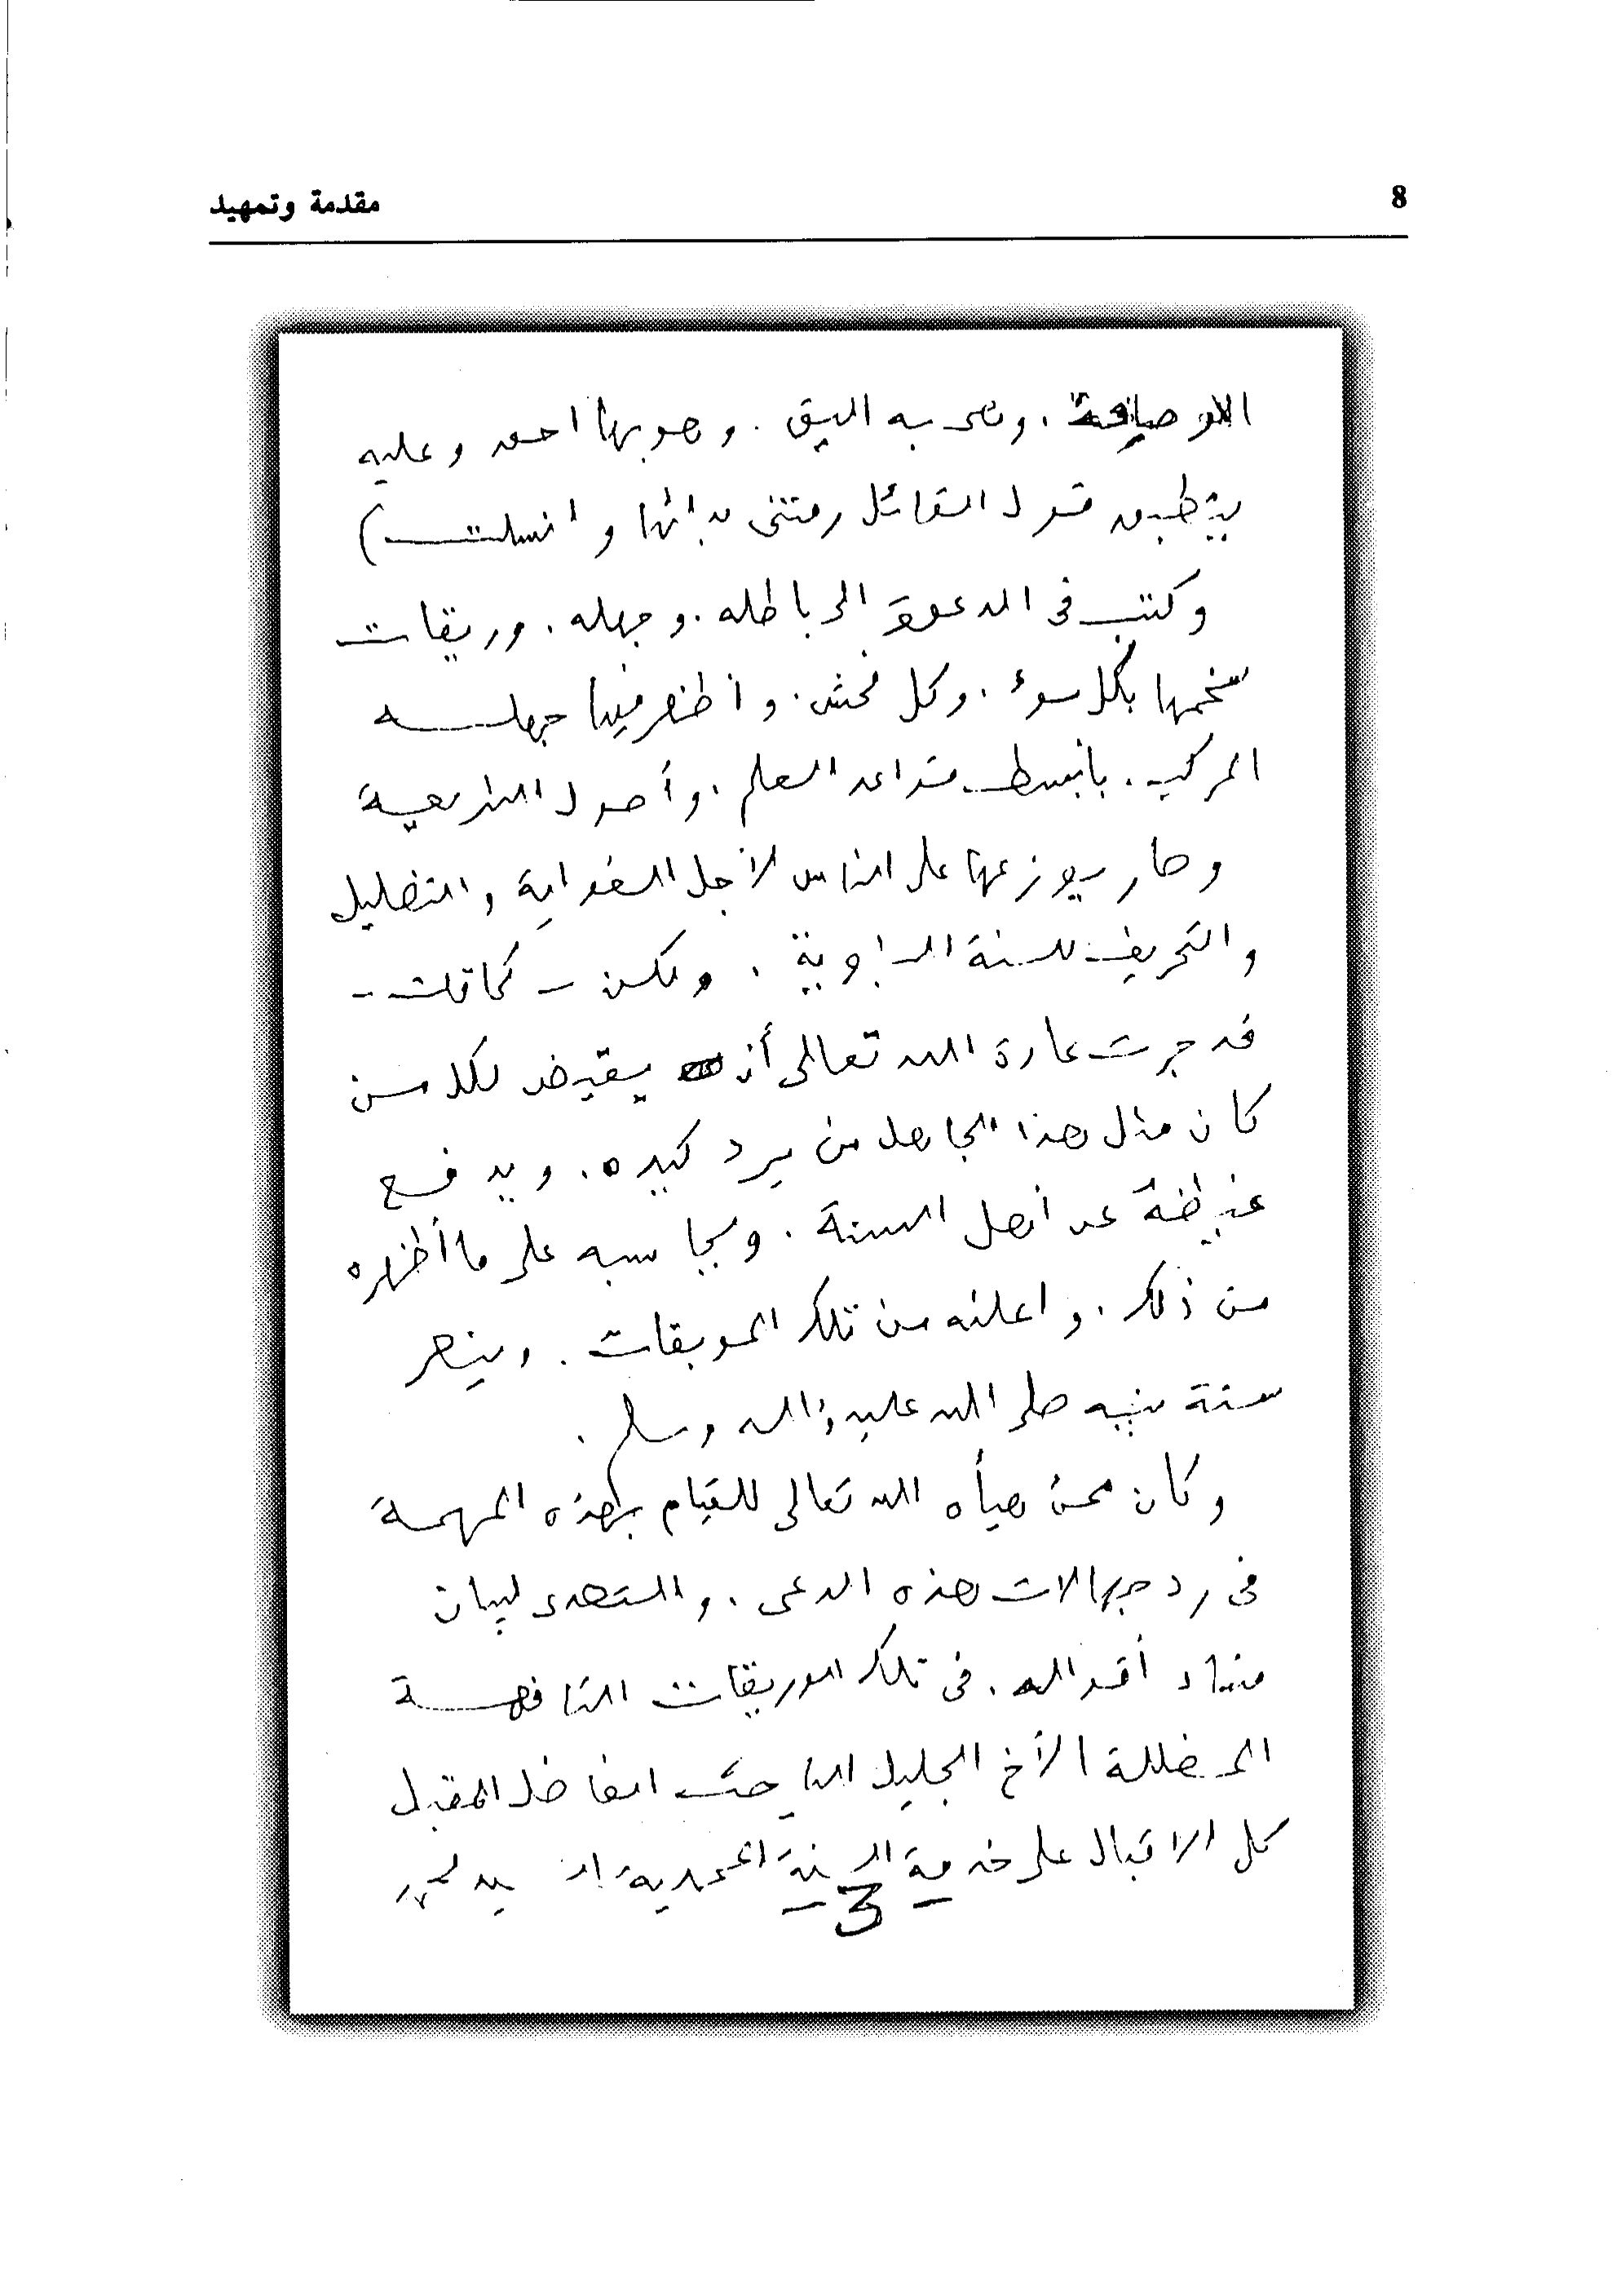 8
مقدمة وتمهيد
الاوصاف. وهى به اليق. وهو بها احق وعليه
ينطبق قول القائل رمتنى بدائها وانسلت)
وكتب فى الدعوة الى باطله. وجهله. وريقات
سخمها بكل سوء. وكل فحش. وأظهر فيها جهله
المركب. بأبسط قواعد العلم. وأصول الشريعة
وصار يوزعها على الناس لأجل الغواية والتضليل
والتحريف للسنة النبوية. ولكن - كما قلت -
قد جرت عادة الله تعالى أن يقيض لكل من
كان مثل هذا الجاهل من يرد كيده. ويدفع
غيظه عن أهل السنة. ويحاسبه على ما أظهره
من ذلك. واعلنه من تلك الموبقات. وينصر
سنة نبيه صلى الله عليه وآله وسلم.
وكان ممن هيأه الله تعالى للقيام بهذه المهمة
فى رد جهالات هذه الدعى. والتصدى لبيان
فساد أقواله. فى تلك الوريقات التافهة
المضللة الأخ الجليل الباحث الفاضل المقبل
كل الاقبال على خدمة السنة المحمدية السيد
- 3 -